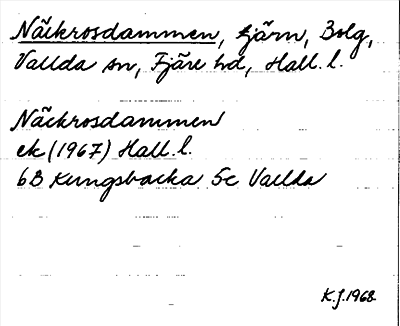 Näckrosdammen, tjärn, Bolg,
Vallda sn, Fjäre hd, Hall. l.
Näckrosdammen
ek (1967) Hall. l.
6B Kungsbacka 5c Vallda
K.J. 1968